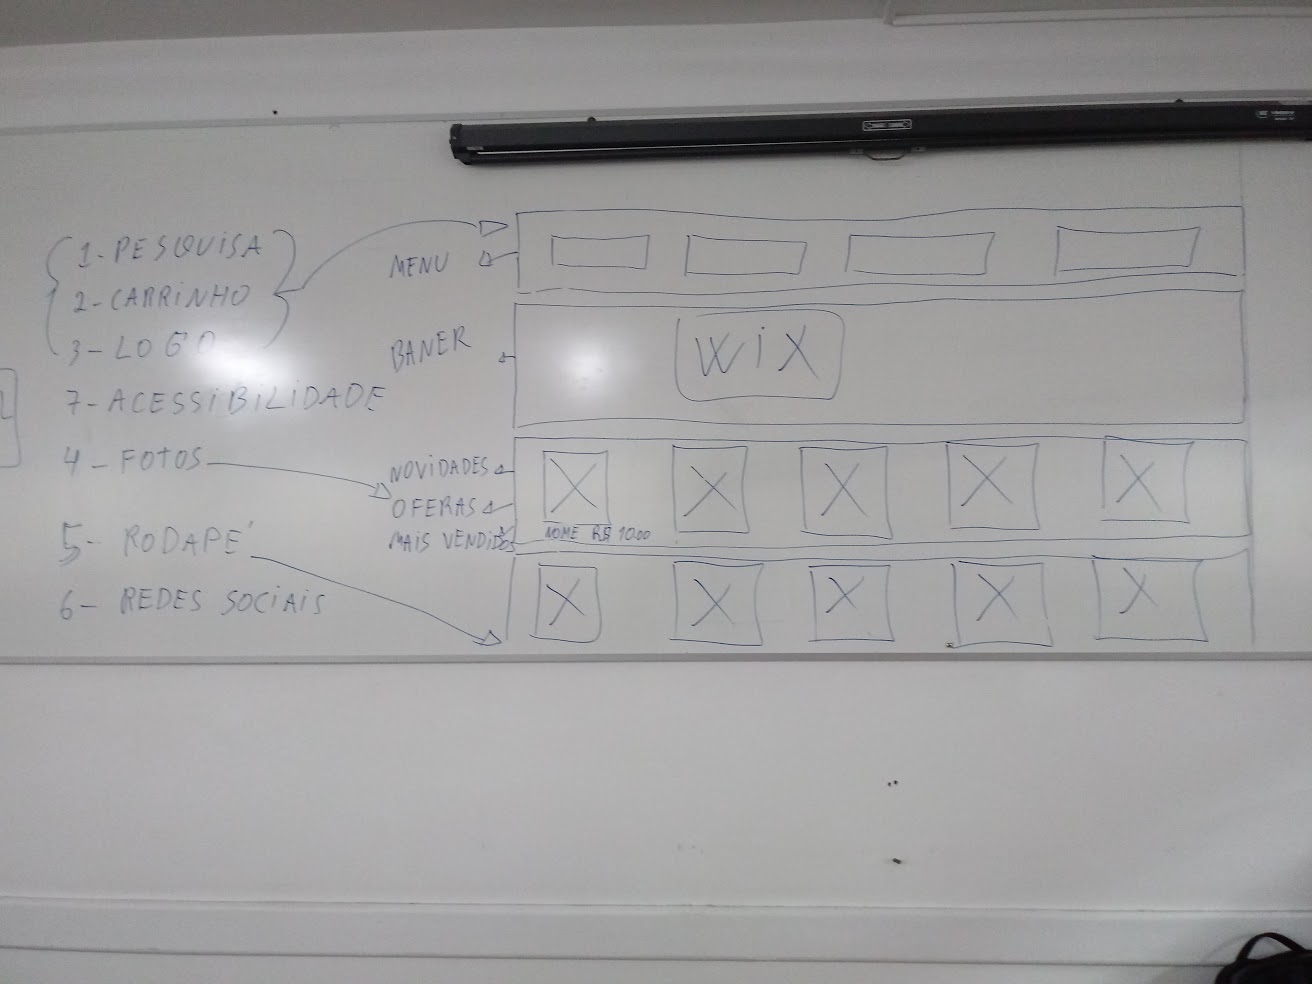 1-PESQUISA
2-CARRINHO
3-LOGO
7-ACESSIBILIDADE
4-FOTOS
5-RODAPÉ
6-REDES SOCIAIS
MENU
BANER
WiX
NOVIDADES
OFERAS
MAIS VENDIDOS
NOME R$ 10.00